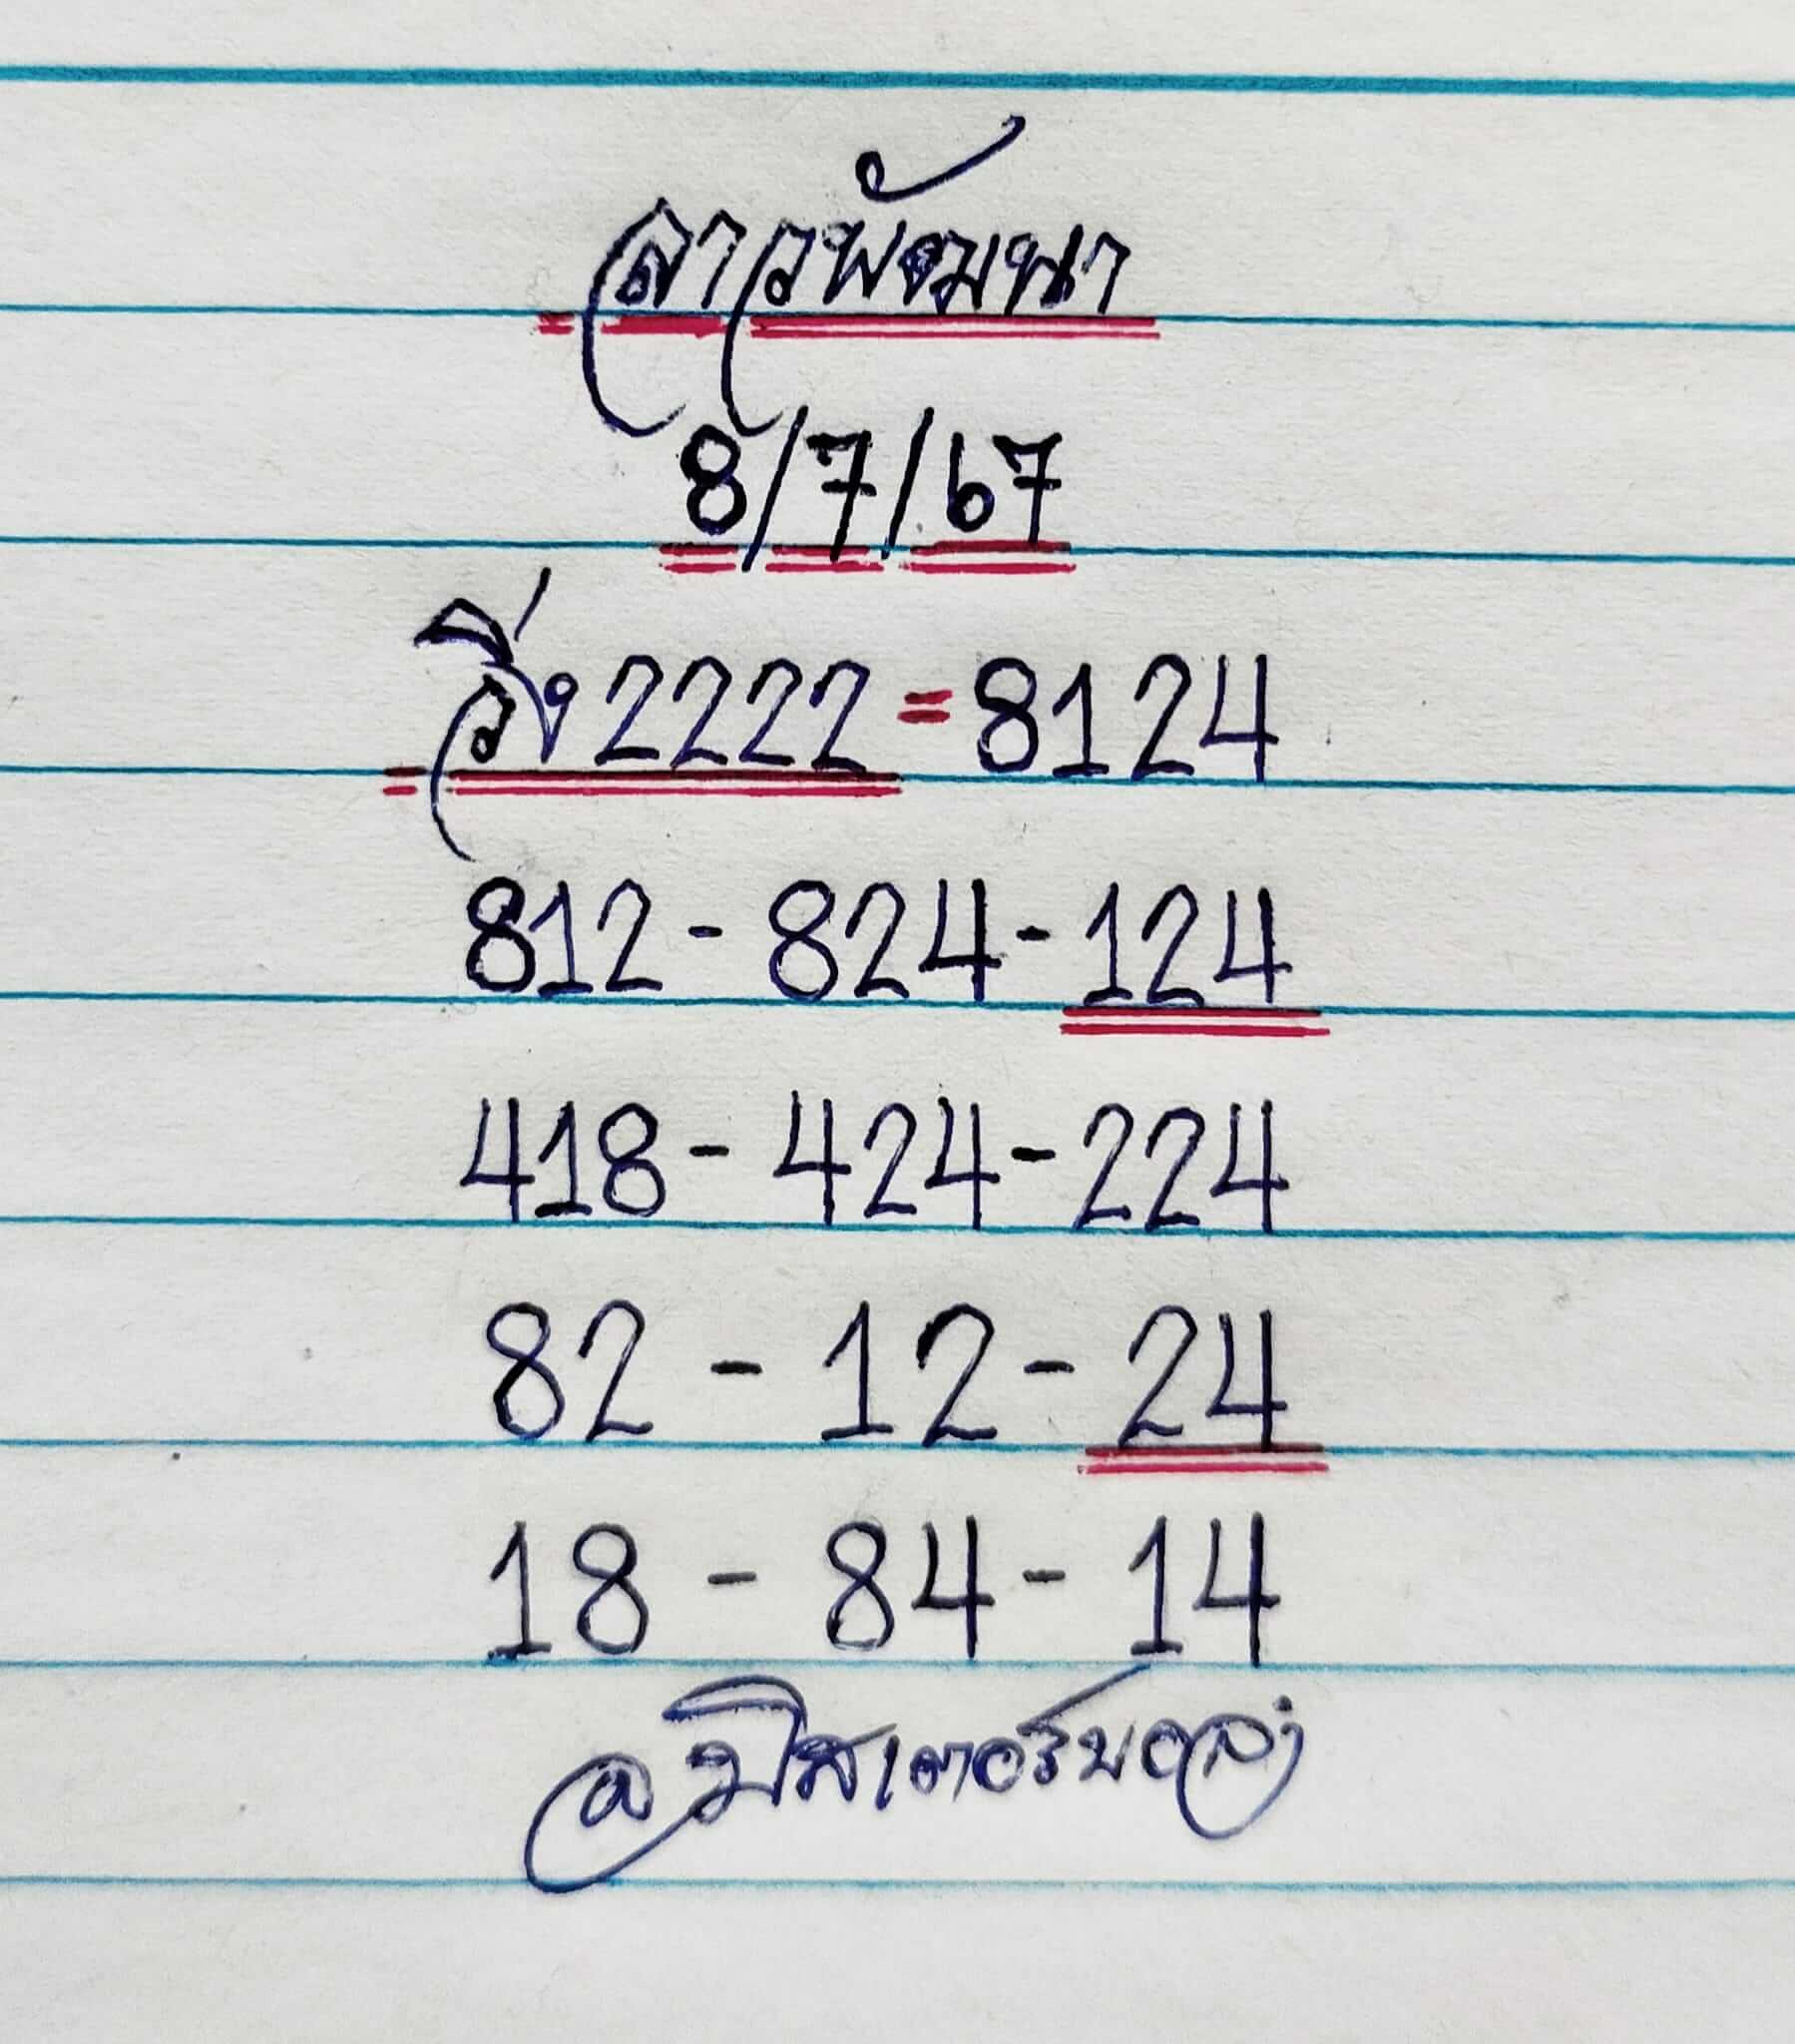 ลาวพัฒนา
8/7/67
วิ่ง 2222 = 8124
812 - 824 - 124
418 - 424 - 224
82 - 12 - 24
18 - 84 - 14
@มิสเตอร์บอล